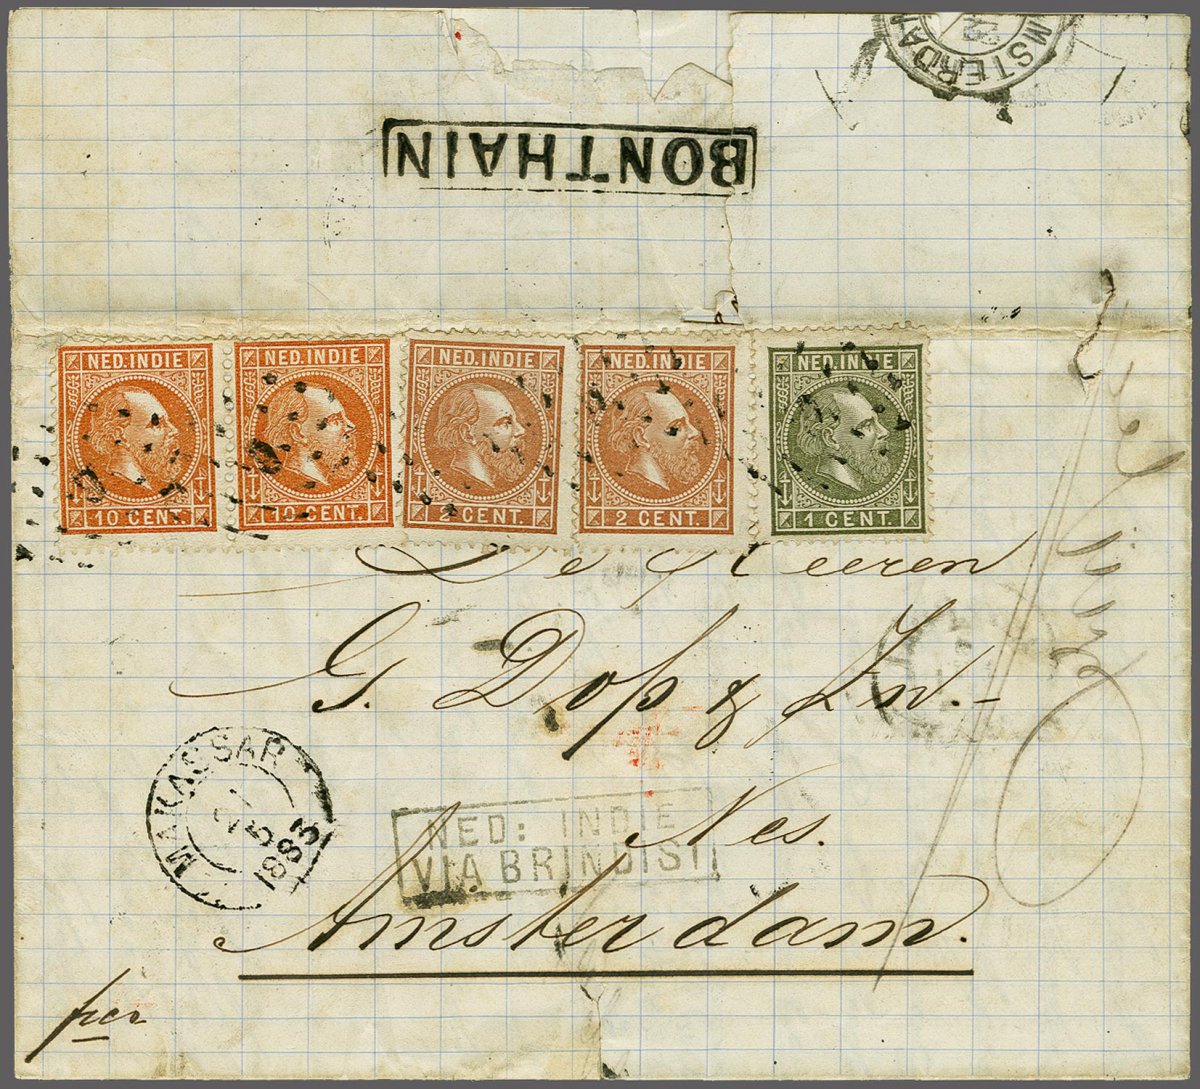 AMSTERDAM
BONTHAIN
NED. INDIE
10 CENT.
NED. INDIE
10 CENT.
NED. INDIE
2 CENT.
NED. INDIE
2 CENT.
NED. INDIE
1 CENT.
De Heeren
G. Dop & Zn.
MAKASSAR
5
1883
NED: INDIE
VIA BRINDISI
Nes.
Amsterdam.
per